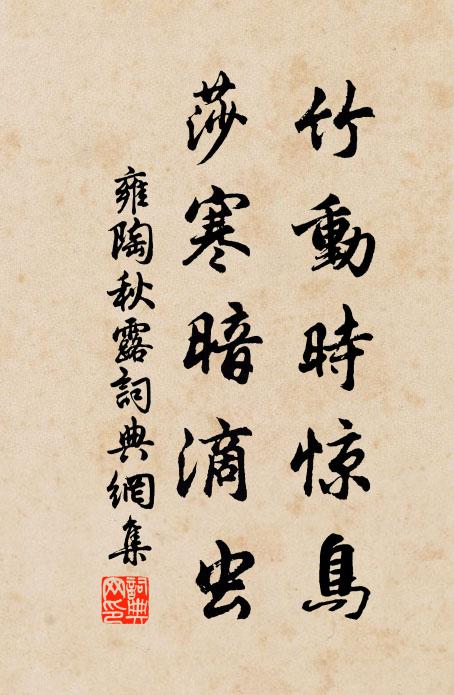 竹動時惊鳥
莎寒暗滴虫
雍陶秋露詞典網集
詞典網印